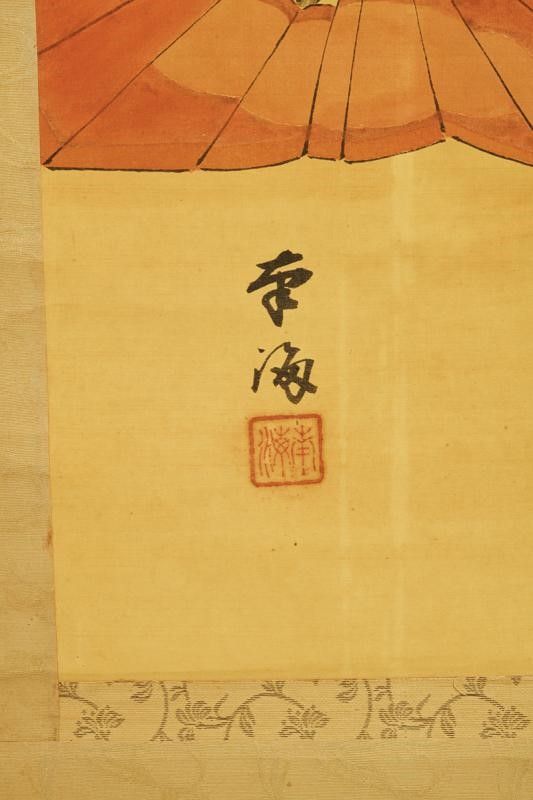 南海
南海